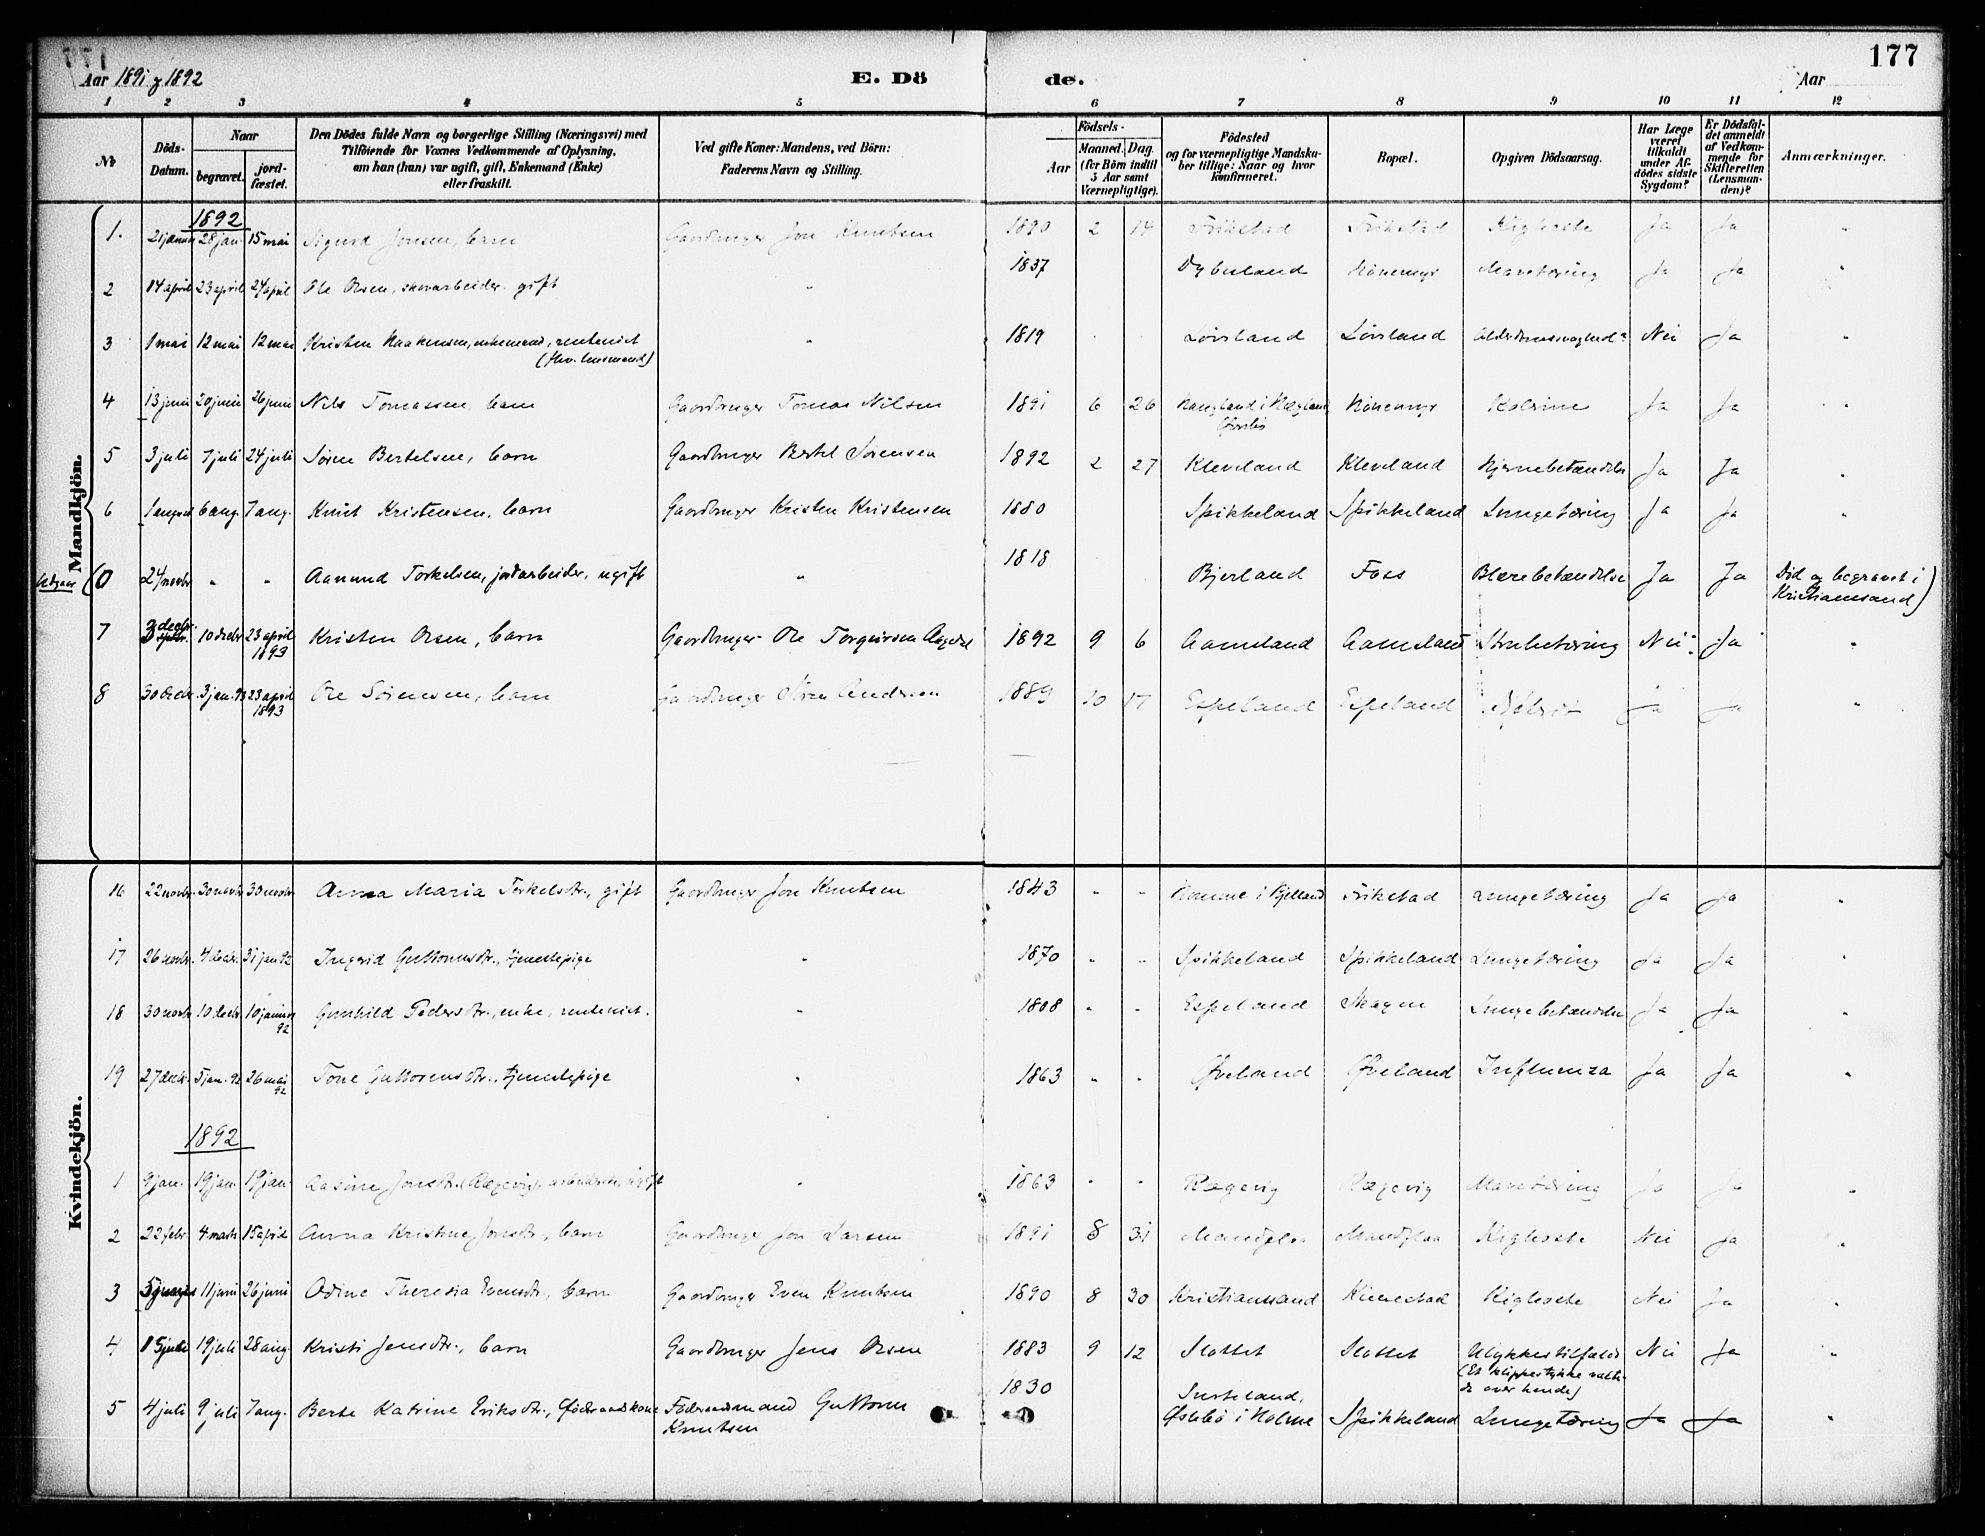 177
Aar 1891 og 1892 E. Dö de. Aar
1 2 3 4 5 6 7 8 9 10 11 12
No
Döds-Datum.
Naar
begravet.
jordfæstet.
Den Dödes fulde Navn og borgerlige Stilling (Næringsvei) med
Tilföiende for Voxnes Vedkommende af Oplysning,
om han (hun) var ugift, gift, Enkemand (Enke)
eller fraskilt.
Ved gifte Koner: Mandens, ved Börn:
Faderens Navn og Stilling.
Födsels-
Aar
Maaned. Dag.
(for Börn indtil
5 Aar samt
Værnepligtige).
Födested
og for værnepligtige Mandska-
ber tillige: Naar og hvor
konfirmeret.
Bopæl.
Opgiven Dödsaarsag.
Har Læge
været
tilkaldt
under Af-
dödes sidste
Sygdom?
Er Dödsfal-
det anmeldt
af Vedkom-
mende for
Skifteretten
(Lensman-
den)?
Anmærkninger.
Mandkjön.
1892
1. 21 januar 28 jan. 15 mai Sigurd Jonsen, barn Gaardbruger Jon Knutsen 1890 2 14 Frikstad Frikstad Kighoste Ja Ja "
2 14 april 23 april 24 april Ole Olsen, skovarbeider, gift " 1837 Dybesland Kónemyr Marvtæring Ja Ja "
3 1 mai 12 mai 12 mai Kristen Haakensen, enkemand, rentenist " 1819 Lövsland Lövsland Alderdomssvaghed Nei Ja "
(fhv. lensmand)
4 13 juni 20 juni 26 juni Nils Tomassen, barn Gaardbruger Tomas Nilsen 1891 6 26 Haugland i Hægland Ja Ja "
Övrebö
5 3 juli 7 juli 24 juli Sören Bertelsen, barn Gaardbruger Bertel Sörensen 1892 2 27 Kleveland Kleveland Hjernebetændelse Ja Ja "
6 1 august 6 aug. 7 aug. Knut Kristensen, barn Gaardbruger Kristen Kristensen 1880 Spikkeland Spikkeland Lungetæring Ja Ja "
(0 24 novbr " " Aanund Torkelsen, jordarbeider, ugift " 1818 Bjerland Foss Blærebetændelse Ja Ja Död og begravet i
Kristianssand)
7 3 decbr. 10 decbr 23 april Kristen Olsen, barn Gaardbruger Ole Torgiersen 1892 9 6 Aameland Aameland Strubetæring Nei Ja "
1893
8 30 decbr. 3 jan. 93 23 april Ole Sörensen, barn Gaardbruger Sören Andersen 1889 10 17 Espeland Espeland Ja Ja "
1893
Kvindekjön.
16 22 novbr. 30 novbr 30 novbr Anna Maria Torkelsdtr., gift Gaardbruger Jon Knutsen 1843 " " Homme i Bjelland Frikstad Lungetæring Ja Ja "
17 26 novbr. 4 decbr. 31 jan 92 Ingerid Guttormsdtr., tjenestepige " 1870 " " Spikkeland Spikkeland Lungetæring Ja Ja "
18 30 novbr 10 decbr. 10 januar Gunhild Pedersdtr., enke, rentenist. " 1808 " " Espeland Skagen Lungebetændelse Ja Ja "
92
19 27 decbr. 5 jan. 92 26 mai Tone Guttormsdtr., tjenestepige " 1863 " " Öveland Öveland Influenza Ja Ja "
92
1892
1 9 jan. 19 jan. 19 jan. Aasine Jonsdtr. Rægevig, ugift " 1863 " " Rægevig Rægevig Marvtæring Ja Ja "
2 22 febr. 4 marts 15 april Anna Kristine Jonsdtr., barn Gaardbruger Jon Larsen 1891 8 31 Mandflaa Mandflaa Kighoste Nei Ja "
3 5 juni 11 juni 26 juni Odine Theresia Evensdtr., barn Gaardbruger Even Knutsen 1890 8 30 Kristianssand Kighoste Nei Ja "
4 15 juli 19 juli 28 aug. Kristi Jensdtr., barn Gaardbruger Jens Olsen 1883 9 12 Slottet Slottet Ulykkestilfælde Nei Ja "
(Et klippestykke væltede over hende)
5 4 juli 9 juli 7 aug. Berte Katrine Eriksdtr., Föderaadskone Föderaadsmand Guttorm 1830
Knutsen
Öslebö i Holme Spikkeland Lungetæring Ja Ja "